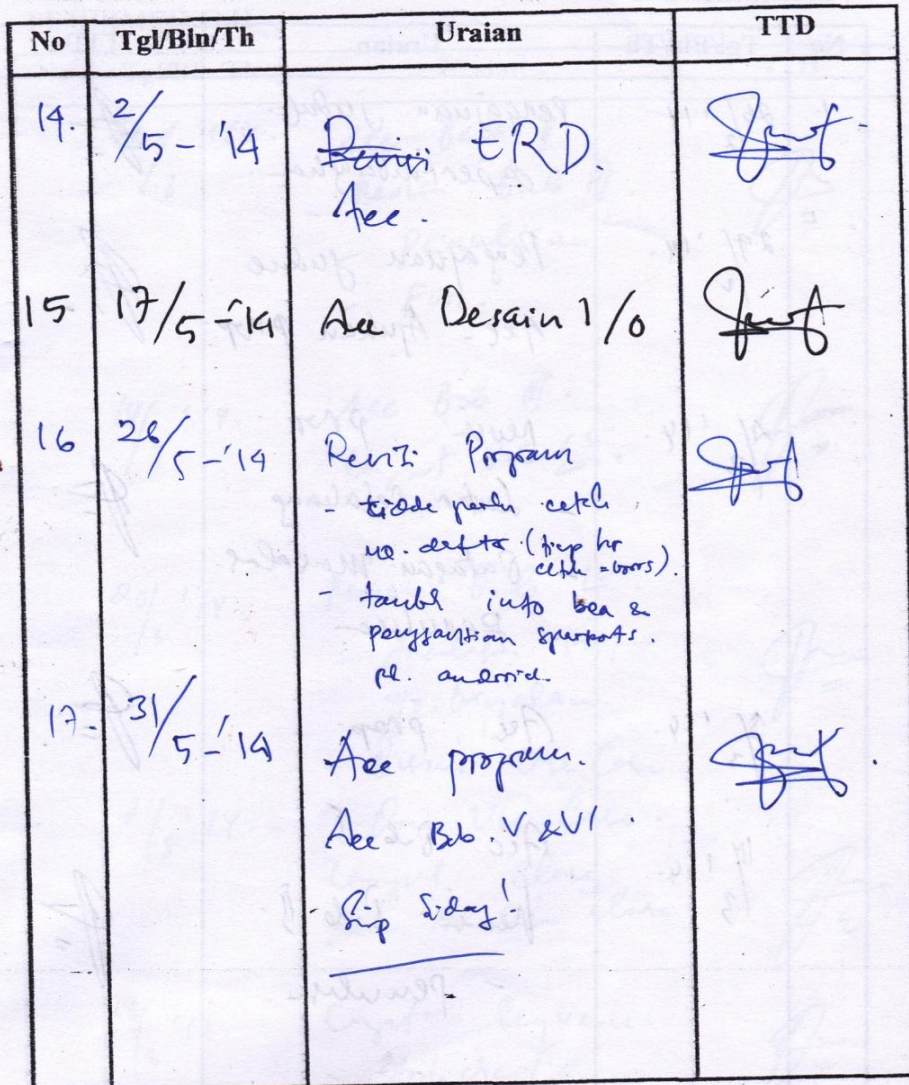 No Tgl/Bln/Th Uraian TTD
14. 2/5-'14 Revisi ERD
Acc.
15 17/5-'14 Acc Desain I/O
16 26/5-'14 Revisi Program
- tidak perlu cetak
no.
(tiap hr
- tambh info bea &
penggantian spareparts.
pd. android.
17. 31/5-'14
Acc program.
Acc Bab. V & VI.
Siap Sidang!